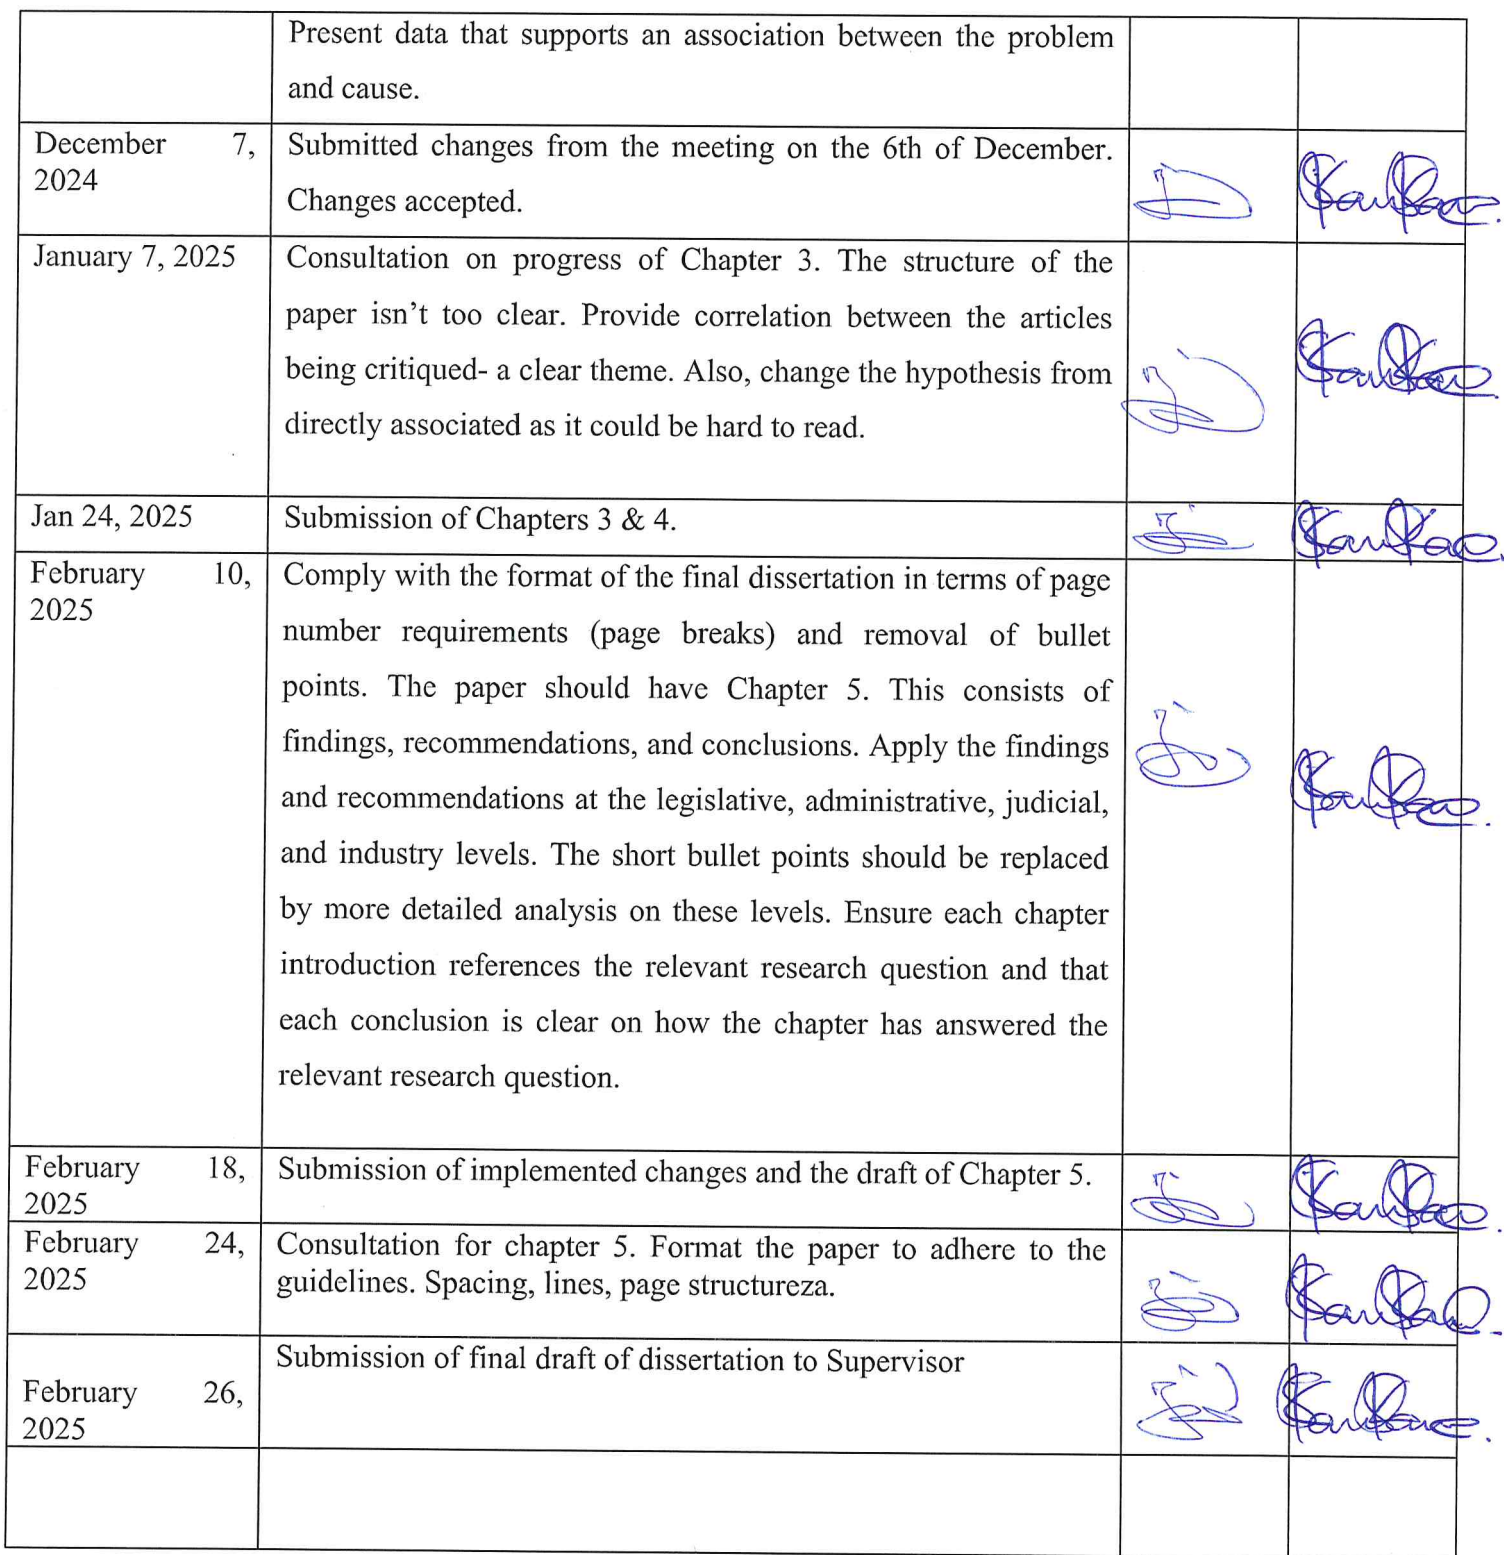 Present data that supports an association between the problem
and cause.
December 7,
2024
Submitted changes from the meeting on the 6th of December.
Changes accepted.
January 7, 2025
Consultation on progress of Chapter 3. The structure of the
paper isn't too clear. Provide correlation between the articles
being critiqued- a clear theme. Also, change the hypothesis from
directly associated as it could be hard to read.
Jan 24, 2025
Submission of Chapters 3 & 4.
February 10,
2025
Comply with the format of the final dissertation in terms of page
number requirements (page breaks) and removal of bullet
points. The paper should have Chapter 5. This consists of
findings, recommendations, and conclusions. Apply the findings
and recommendations at the legislative, administrative, judicial,
and industry levels. The short bullet points should be replaced
by more detailed analysis on these levels. Ensure each chapter
introduction references the relevant research question and that
each conclusion is clear on how the chapter has answered the
relevant research question.
February 18,
2025
Submission of implemented changes and the draft of Chapter 5.
February 24,
2025
Consultation for chapter 5. Format the paper to adhere to the
guidelines. Spacing, lines, page structureza.
February 26,
2025
Submission of final draft of dissertation to Supervisor